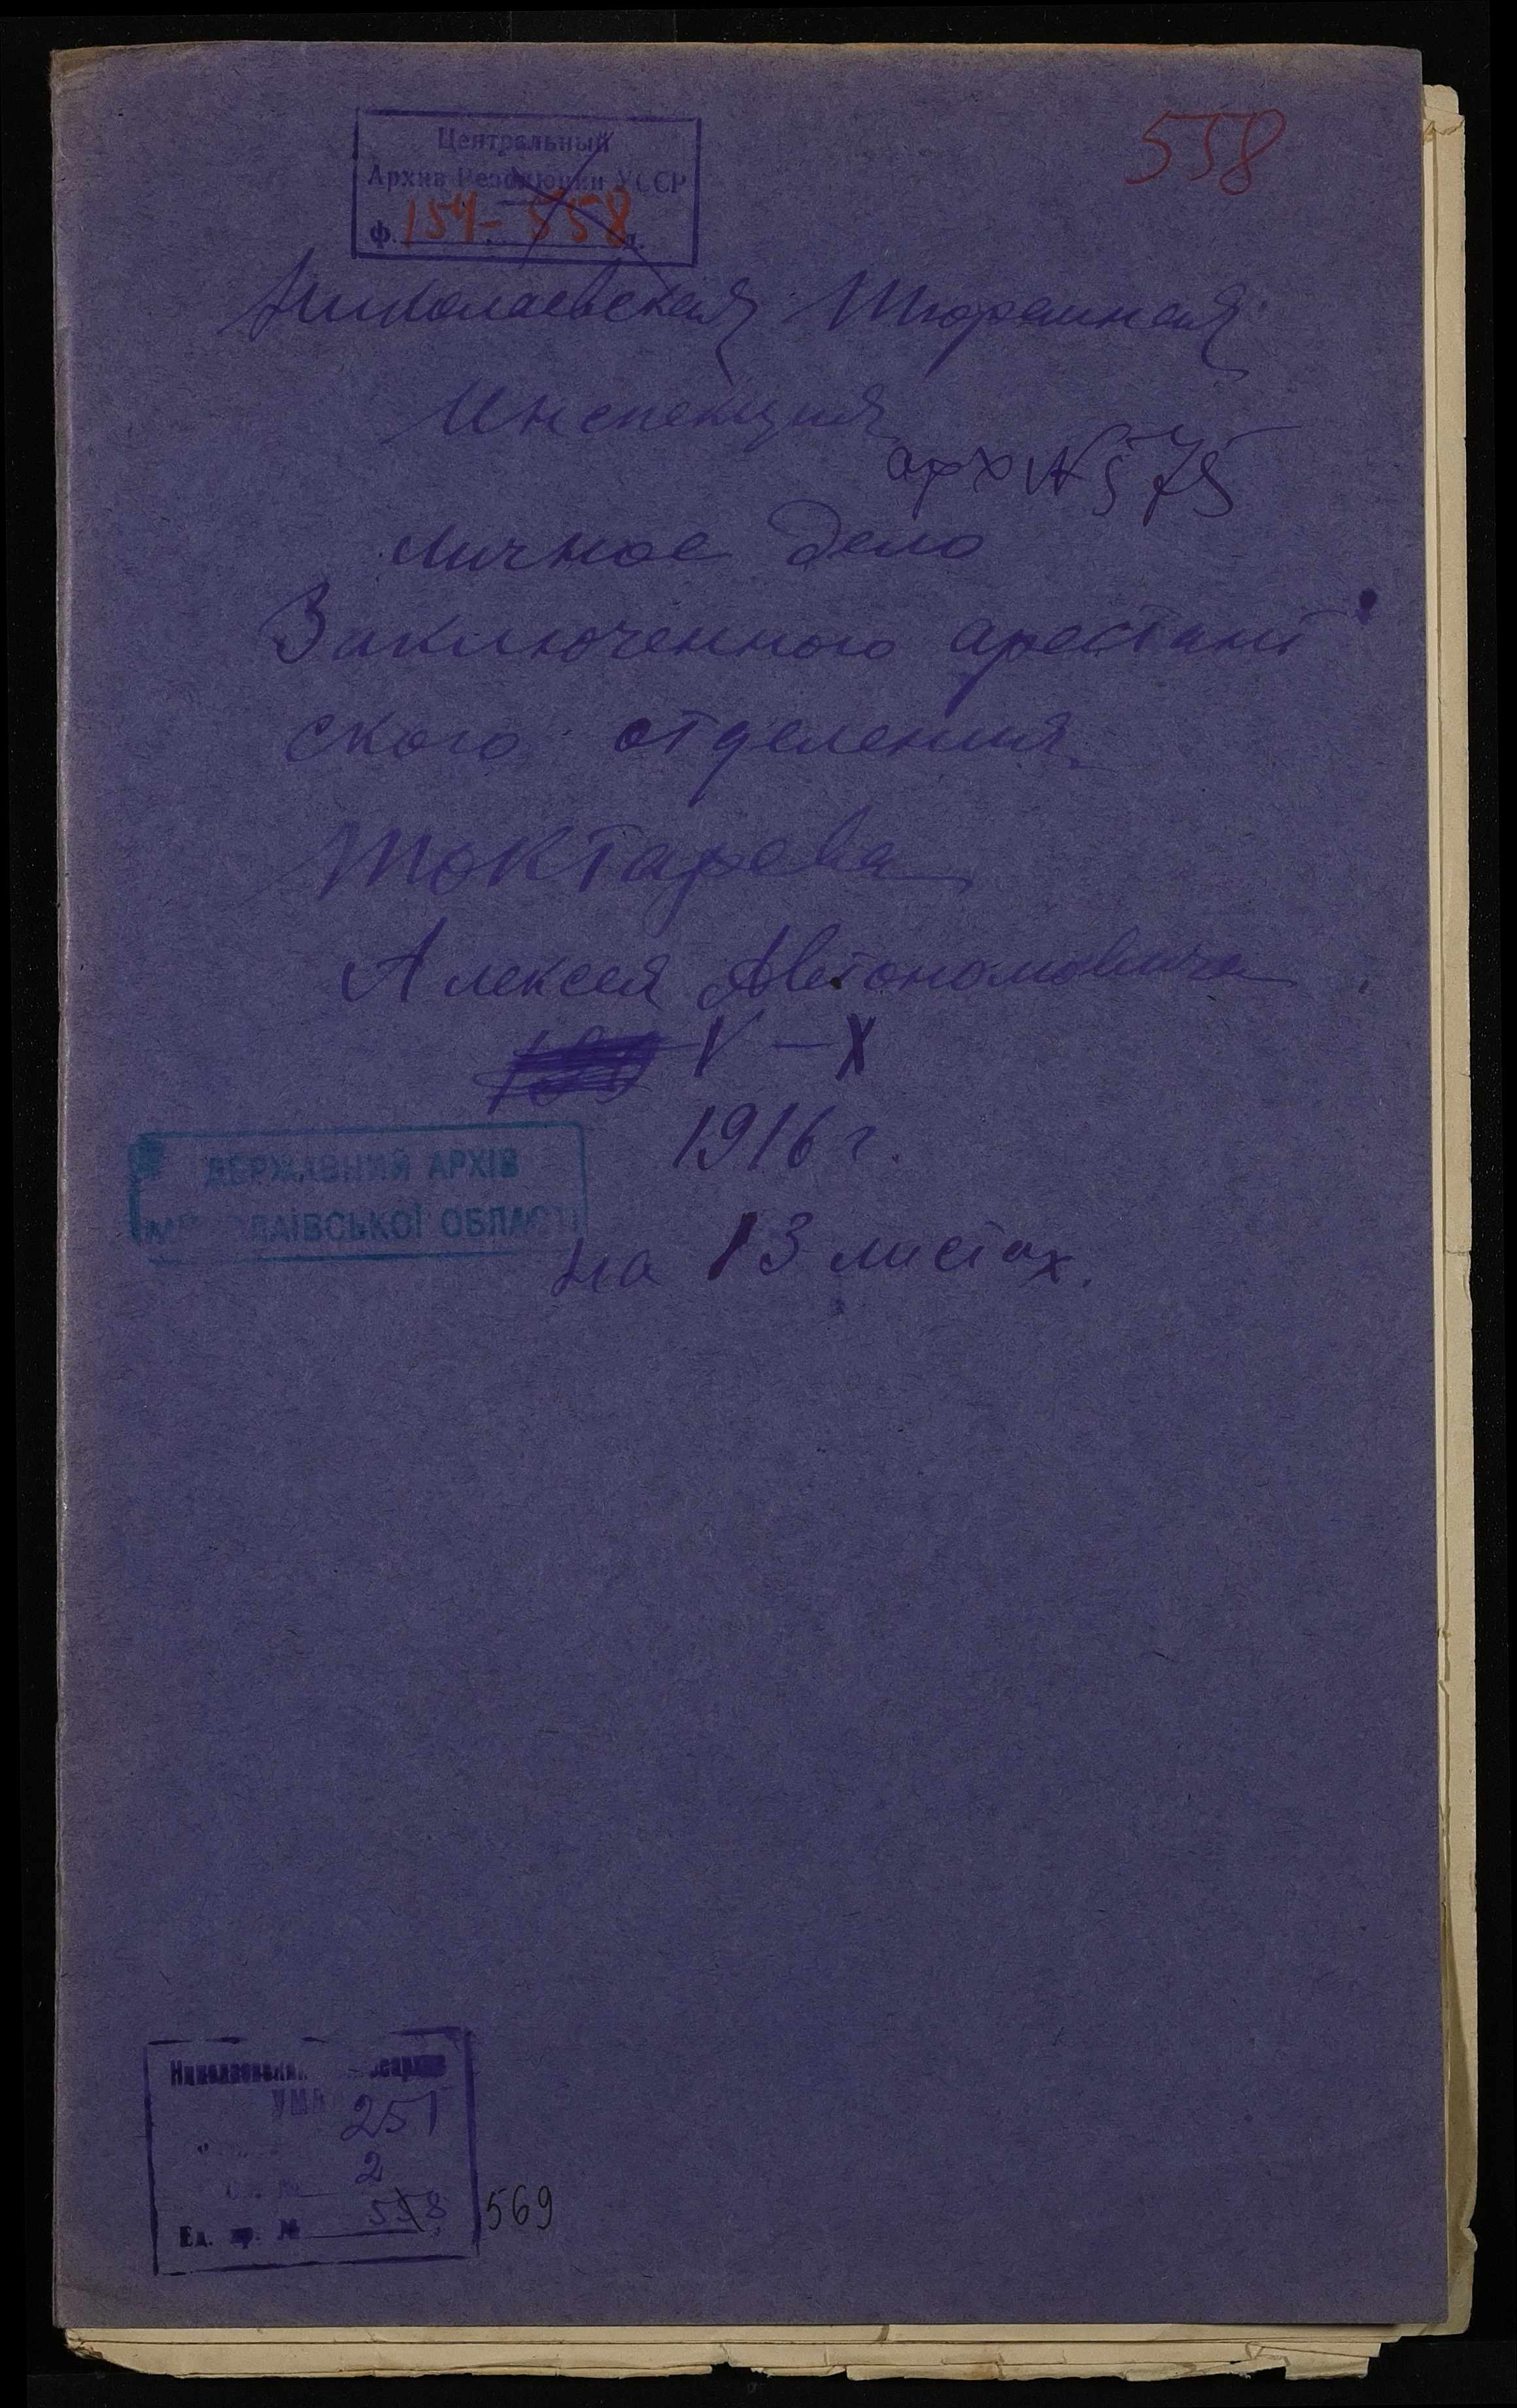 Центральный
Архив Революции УССР
ф. 154- 558 д.
558
Николаевская Тюремная
Инспекция
арх № 575
Личное дело
Заключенного арестант
ского отделения
Токтарева
Алексея Автономовича
V – X
1916 г.
ДЕРЖАВНИЙ АРХІВ
МИКОЛАЇВСЬКОЇ ОБЛАСТІ
на 13 листах.
251
2
Ед. хр. № 558
569